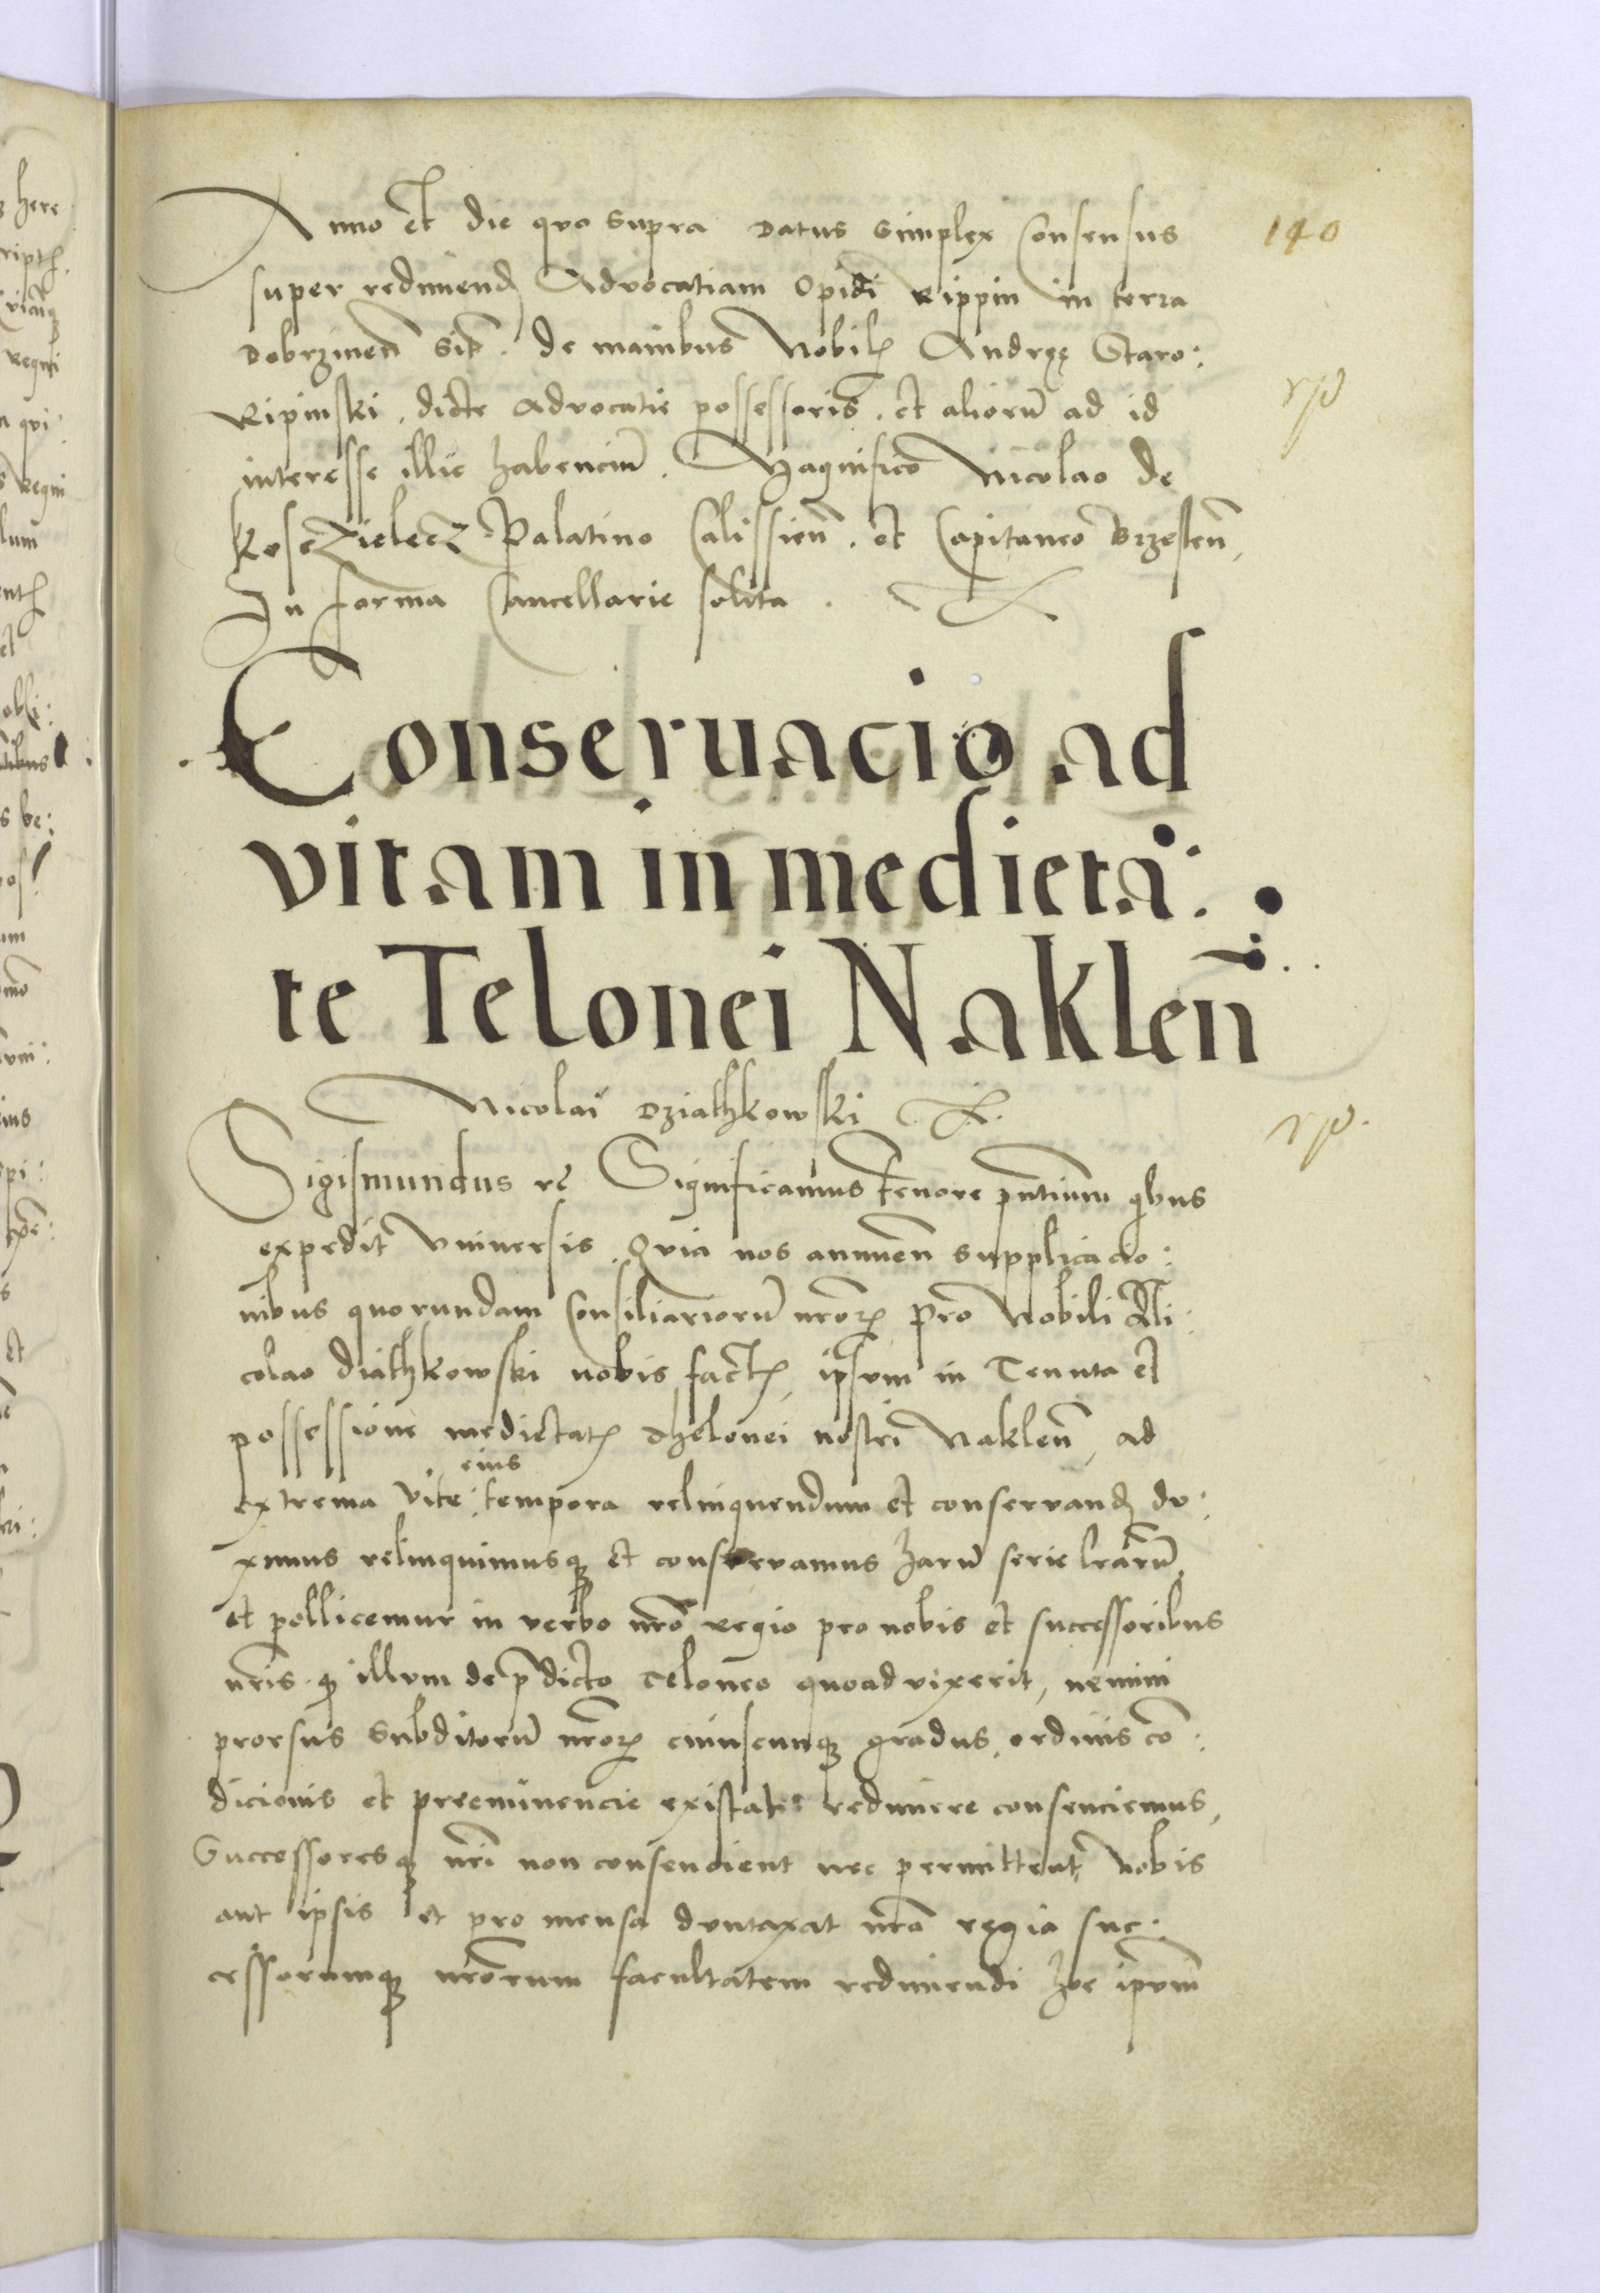 140
Anno et die quo supra datus simplex Consensus
super redimend Advocatiam Opidi Rippin in terra
Dobrzinen sit. de manibus Nobil Andreę Staro:
Ripinski, dicte Advocatie possessoris. et aliorū ad id
interesse illic habenciū. Magnifico Nicolao de
Kosczielecz Palatino Calissien. et Capitaneo Brzesten,
In forma Cancellarie solita.
Conseruacio ad
vitam in medieta:
te Telonei Naklen̄
Nicolai Dziathkowski
Sigismundus rē Significamus tenore pn̄tium qbus
expedit Vniversis. Quia nos annuen̄ supplicacio:
nibus quorundam Consiliariorū nrōꝝ pro Nobili Ni:
colao Diathkowski nobis fact, ipsum in Tenuta et
possessione medietat Thelonei nostri Naklen̄, ad
extrema vite eius tempora relinquendum et conservand du:
ximus relinquimusqꝫ et conservamus harū serie lrārū,
et pollicemur in verbo nrō regio pro nobis et successoribus
nrīs. ꝙ illum de p̄dicto teloneo quoad vixerit, nemini
prorsus subditorū nrōꝝ cuiuscunqꝫ gradus, ordinis cō:
dicionis et preeminencie existat redimere consenciemus,
Successoresqꝫ nrī non consencient nec permittent, Nobis
aut ipsis et pro mensa duntaxat nrā regia suc:
cessorumqꝫ nrōrum facultatem redimendi hoc ipsum